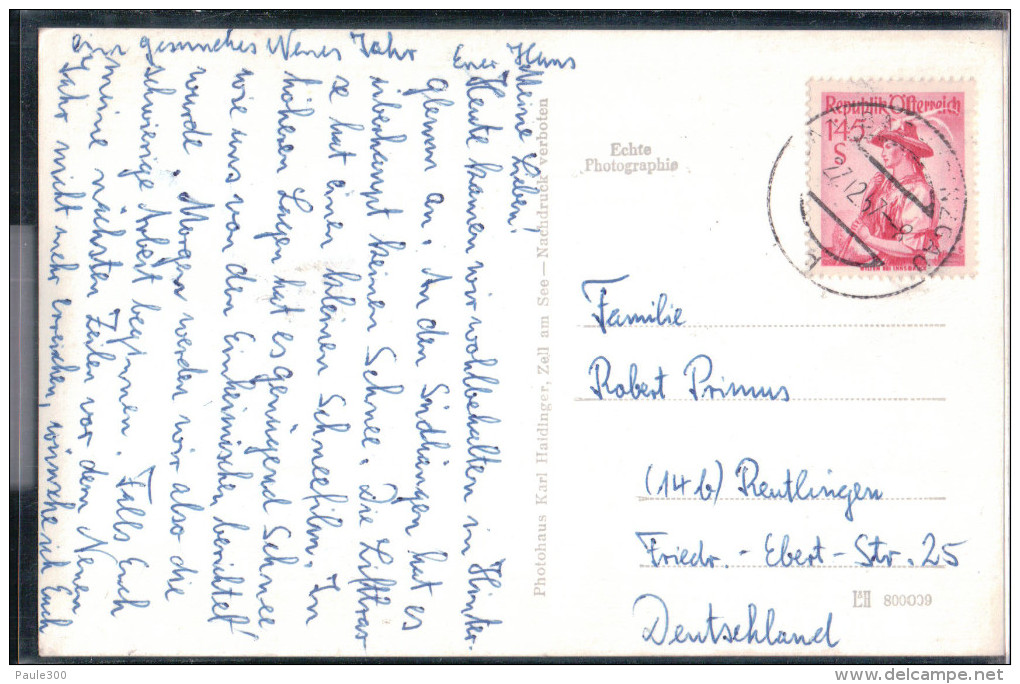 Meine Lieben!
Heute kamen wir wohlbehalten in Hinter-
glemm an. An den Südhängen hat es
überhaupt keinen Schnee. Die Lifttras-
se hat einen kleinen Schneefilm. In
höheren Lagen hat es genügend Schnee
wie uns von den Einheimischen berichtet
wurde. Morgen werden wir also die
schwierige Arbeit beginnen. Falls Euch
meine nächsten Zeilen vor dem Neuen
Jahr nicht mehr erreichen, wünsche ich Euch
ein gesundes Neues Jahr
Euer Hans
Photohaus Karl Haidinger, Zell am See — Nachdruck verboten
Echte
Photographie
Republik Österreich
145
S
27.12.57-8
Familie
Robert Primus
(14b) Reutlingen
Friedr.-Ebert-Str. 25
Deutschland
800009
Paule300